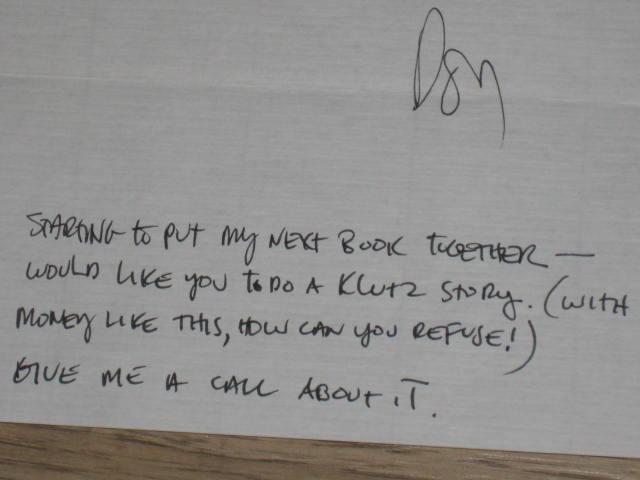 STARTING to PUT MY NEXT BOOK TOGETHER —
WOULD LIKE YOU to DO A KLUTZ STORY. (WITH
MONEY LIKE THIS, HOW CAN YOU REFUSE!)
GIVE ME A CALL ABOUT IT.